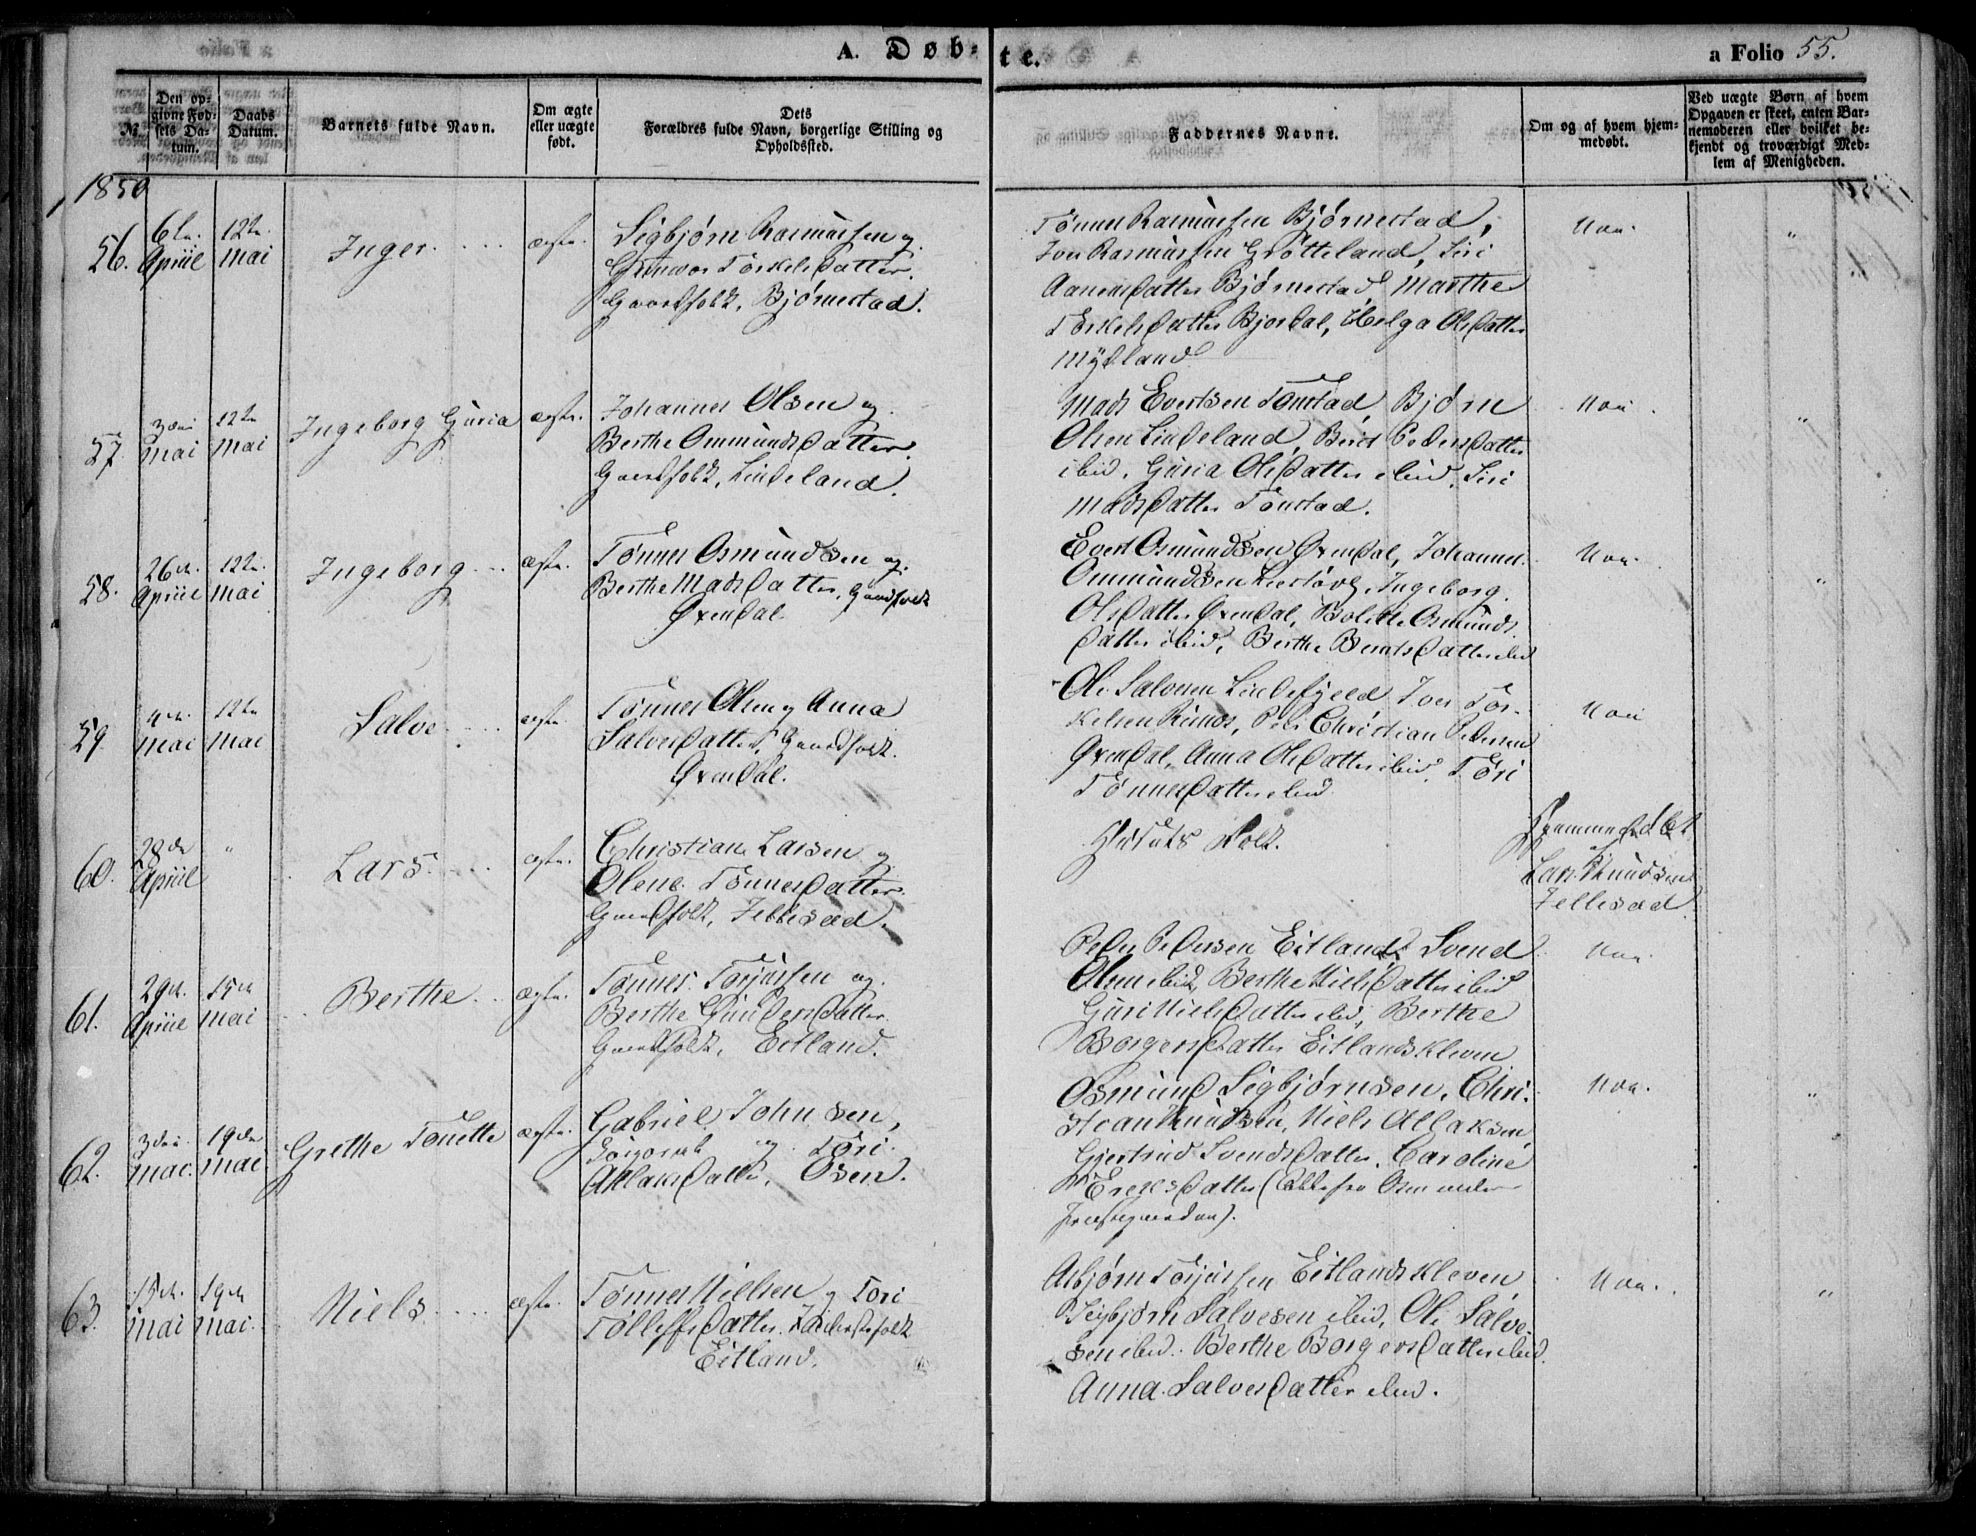 A. Døbte.
a Folio 55.
No.
Den opgivne Fødsels Datum.
Daabs Datum.
Barnets fulde Navn.
Om ægte eller uægte født.
Dets Forældres fulde Navn, borgerlige Stilling og Opholdssted.
Faddernes Navne.
Om og af hvem hjemmedøbt.
Ved uægte Børn af hvem Opgaven er skeet, enten Barnemoderen eller hvilket bekjendt og troværdigt Medlem af Menigheden.
1850
56. 6te April 12te Mai Inger ægte.
Sigbjørn Rasmussen og
Gunvor Torkelsdatter.
Gaardfolk, Bjørnestad.
Tønnes Rasmussen Bjørnestad,
Iver Rasmussen Grøtteland, Siri
Aanensdatter Bjørnestad, Marthe
Torkelsdatter Bjordal, Helga Olsdatter
Mydland
Nei.
"
57. 3die Mai 12te Mai Ingeborg Guria ægte.
Johannes Olsen og
Berthe Ommundsdatter.
Gaardfolk, Lindeland.
Mads Evertsen Tonstad, Bjørn
Olsen Lindeland, Berit Pedersdatter
ibid, Guria Olsdatter ibid, Siri
Madsdatter Tonstad.
Nei.
"
58. 26de April 12te Mai Ingeborg ægte.
Tønnes Osmundsen og
Berthe Madsdatter, Gaardfolk
Øxendal.
Evert Osmundsen Øxendal, Johannes
Ommundsen, Ingeborg
Olsdatter Øxendal, Bolette Osmunds
datter ibid, Berthe Berntsdatter ibid
Nei.
"
59. 4de Mai 12te Mai Salve ægte.
Tønnes Olsen og Anna
Salvesdatter, Gaardfolk.
Øxendal.
Ole Salvesen Lindefjeld, Iver Tor-
kelsen, Peder Christian Pedersen
Øxendal, Anna Olsdatter ibid, Tori
Tønnesdatter ibid.
Nei
60. 28de April " Lars ægte.
Christian Larsen og
Olene Tønnesdatter.
Gaardfolk, Jellesad.
Folk.
Hjemmedøbt
af
Lars Knudsen
Jellesad.
61. 29de April 15de Mai Berthe ægte.
Tønnes Torjussen og
Berthe Gundersdatter.
Gaardfolk, Eitland.
Peder Pedersen Eitland, Svend
Olsen ibid, Berthe Nielsdatter ibid
Guri Nielsdatter ibid, Berthe
Borgersdatter Eitlandskleven
Nei.
62. 3die Mai 19de Mai Grethe Tonette ægte.
Gabriel Johnsen,
og Tori
Atlaksdatter, Osen.
Osmund Sigbjørnsen, Chri-
stian Knudsen, Niels Atlaksen,
Gjertrud Svendsdatter, Caroline
Erichsdatter (Alle fra Osen under
Præstegaarden).
Nei.
"
63. 15de Mai 19de Mai Niels ægte.
Tønnes Nielsen og Tori
Tollefsdatter. Inderstfolk
Eitland.
Asbjørn Torjussen Eitlandskleven
Sigbjørn Salvesen ibid, Ole Salve-
sen ibid. Berthe Borgersdatter ibid.
Anna Salvesdatter ibid.
Nei.
"